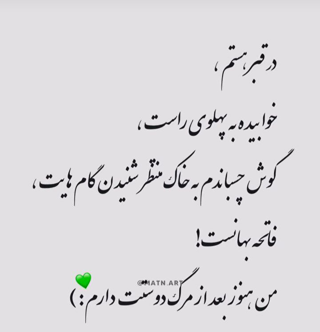 در قبر هستم ،
خوابیده به پهلوی راست ،
گوش چسباندم به خاک منتظر شنیدن گام هایت ،
فاتحه بهانست!
@MATN.ART
من هنوز بعد از مرگ دوستت دارم : )